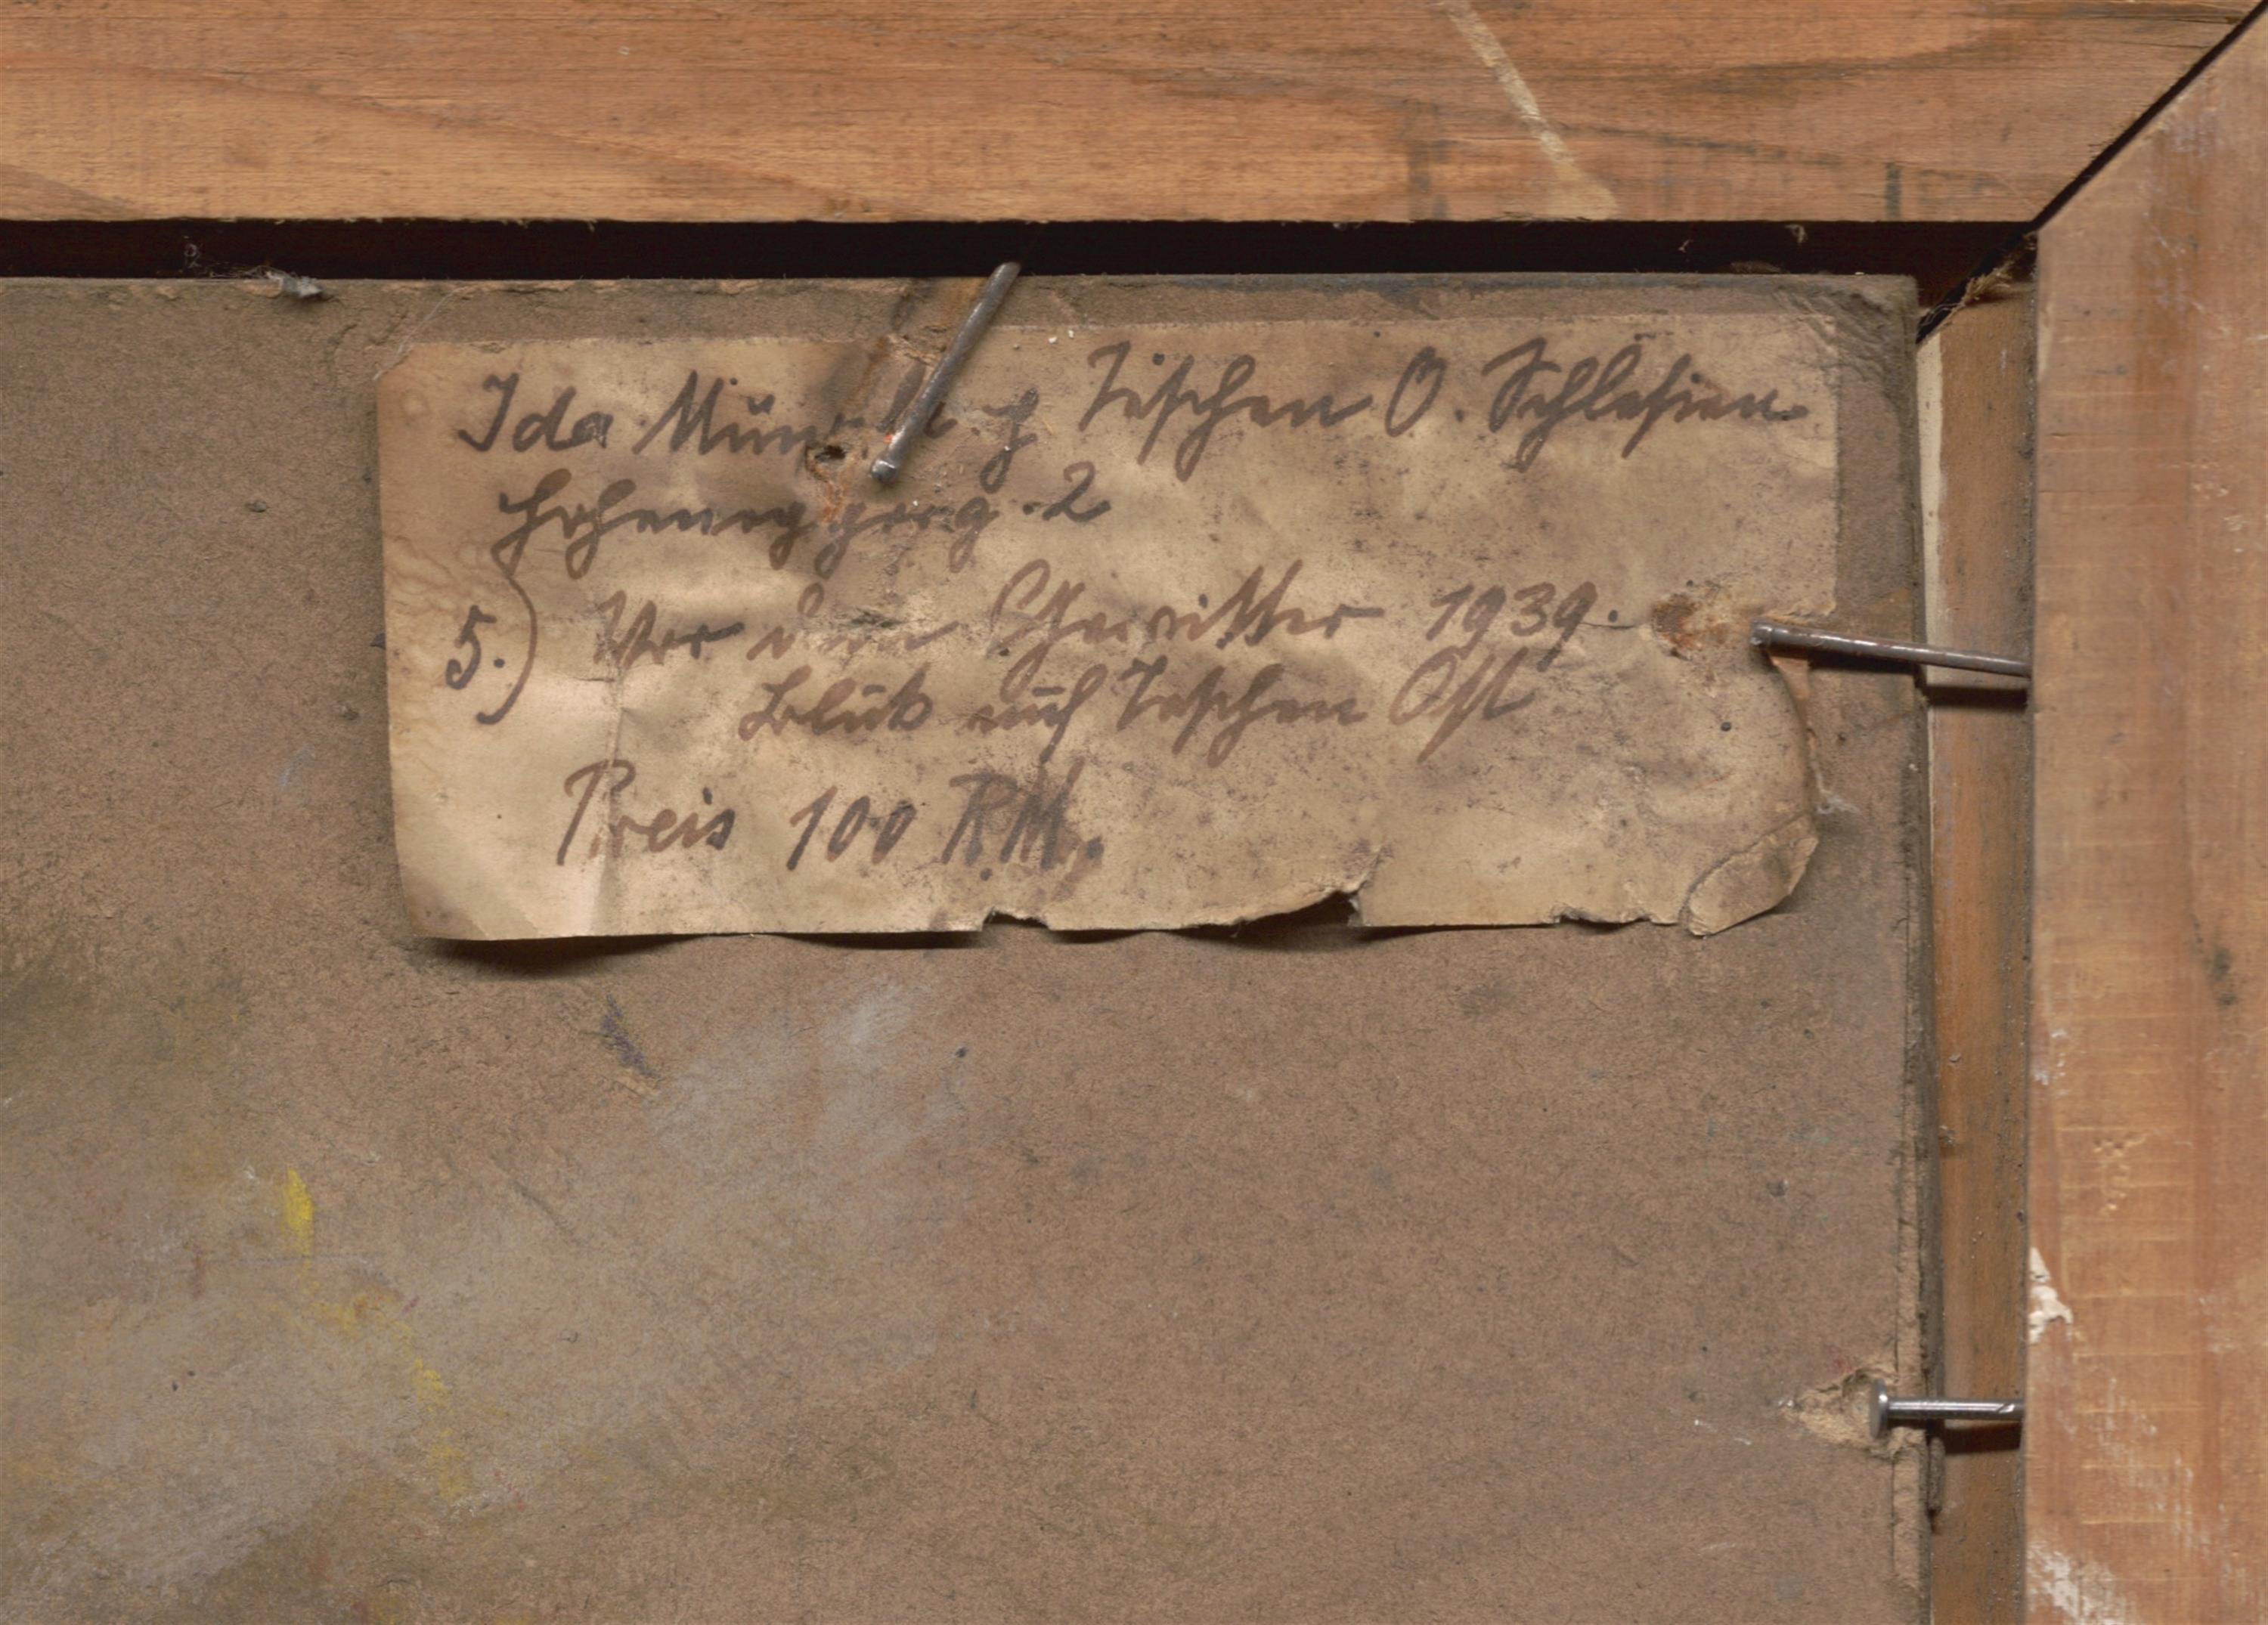 Ida Münzberg Teschen O. Schlesien
Hoheneggerg. 2
5.) Vor dem Gewitter 1939.
Blick auf Teschen Ost
Preis 100 R.M.